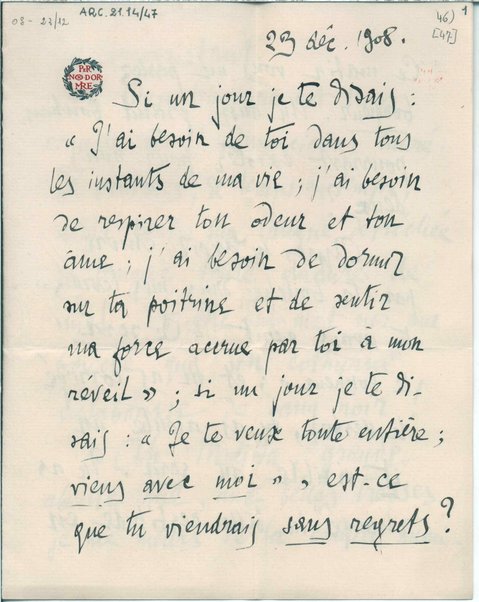 ARC.21.14/47
08-23/12
46)
1
[47]
23 déc. 1908.
PER
NON DOR
MIRE
Si un jour je te disais :
" J'ai besoin de toi dans tous
les instants de ma vie ; j'ai besoin
de respirer ton odeur et ton
âme ; j'ai besoin de dormir
sur ta poitrine et de sentir
ma force accrue par toi à mon
réveil " ; si un jour je te di-
sais : " Je te veux toute entière ;
viens avec moi " " est-ce
que tu viendrais sans regrets ?